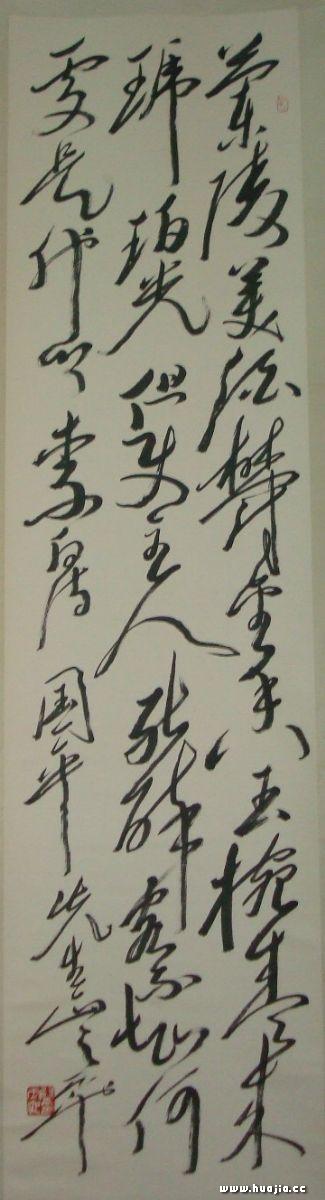 蘭陵美酒鬱金香玉椀盛來
琥珀光但使主人能醉客不知何
處是他鄉 李白詩 国平先生
www.huajia.cc